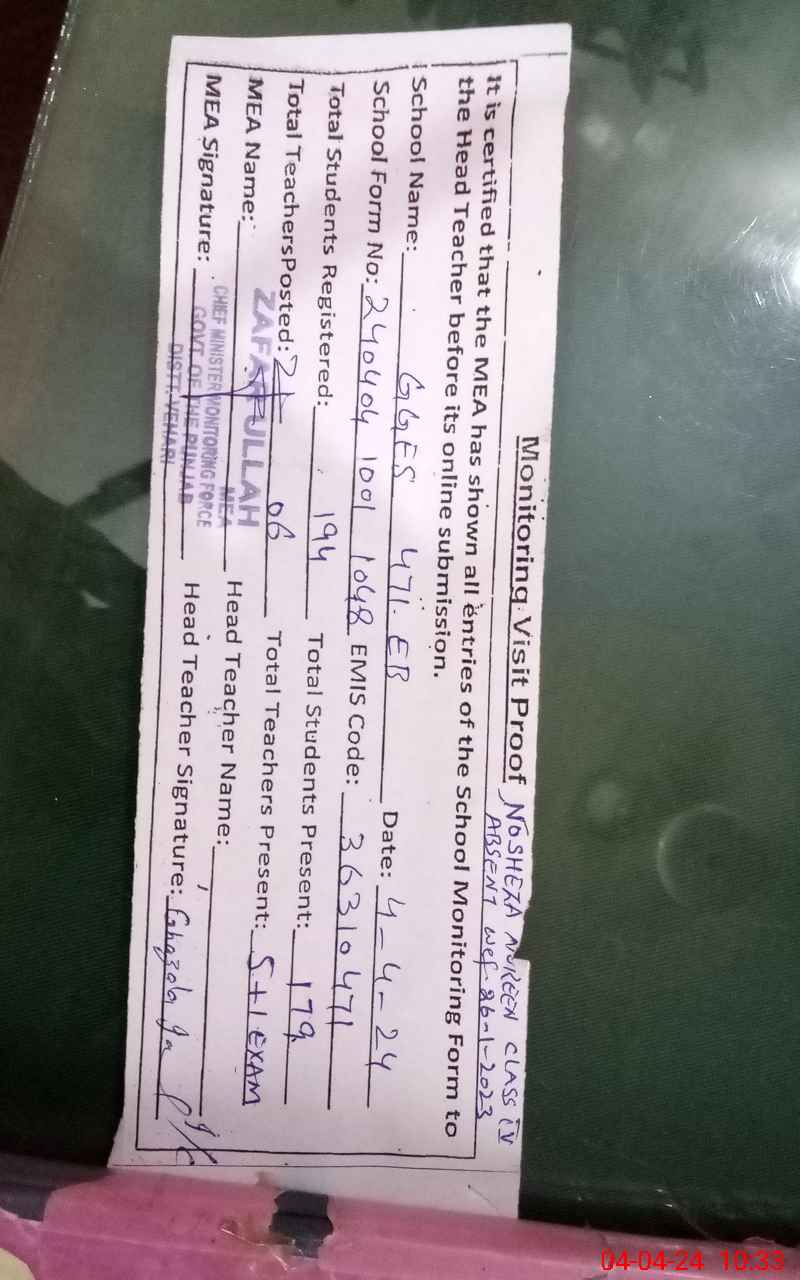 Monitoring Visit Proof
NOSHEZA NUREEN CLASS IV
ABSENT wef 26-1-2023
It is certified that the MEA has shown all entries of the School Monitoring Form to
the Head Teacher before its online submission.
School Name: GGES 471. EB Date: 4-4-24
School Form No: 240404 1001 1048 EMIS Code: 36310471
Total Students Registered: 194 Total Students Present: 179
Total TeachersPosted: 06 Total Teachers Present: 5+1 EXAM
MEA Name: ZAFARULLAH Head Teacher Name:
MEA
MEA Signature: Head Teacher Signature: Ghazala
CHIEF MINISTER MONITORING FORCE
GOVT OF THE PUNJAB
DISTT. VEHARI
04-04-24 10:33